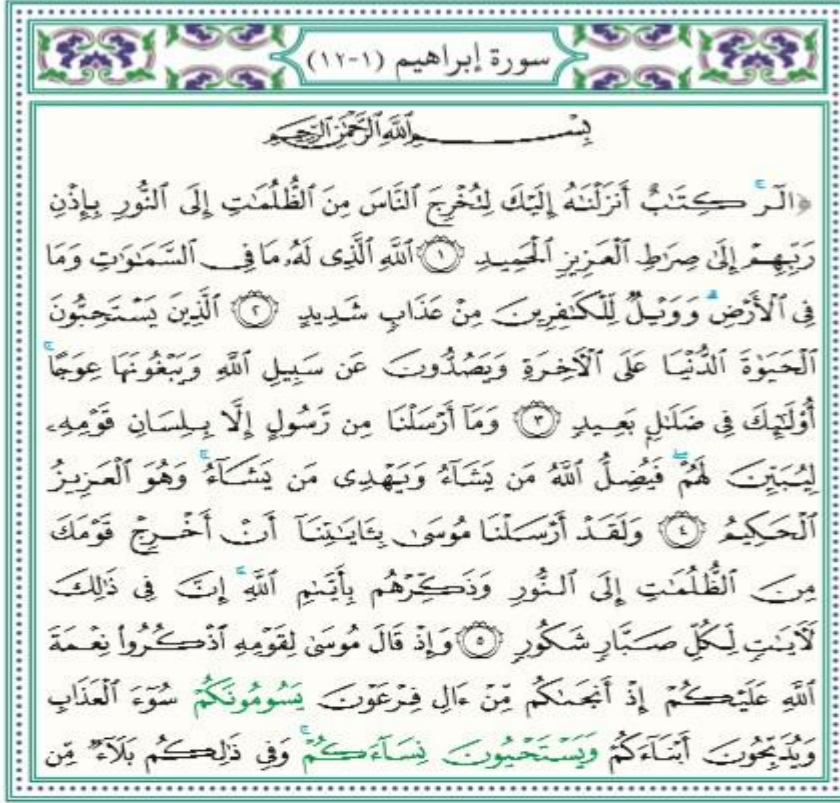 سورة إبراهيم (١-١٢)
بِسْمِ ٱللَّهِ ٱلرَّحْمَٰنِ ٱلرَّحِيمِ
﴿الٓرۚ كِتَٰبٌ أَنزَلْنَٰهُ إِلَيْكَ لِتُخْرِجَ ٱلنَّاسَ مِنَ ٱلظُّلُمَٰتِ إِلَى ٱلنُّورِ بِإِذْنِ
رَبِّهِمْ إِلَىٰ صِرَٰطِ ٱلْعَزِيزِ ٱلْحَمِيدِ ١ ٱللَّهِ ٱلَّذِى لَهُۥ مَا فِى ٱلسَّمَٰوَٰتِ وَمَا
فِى ٱلْأَرْضِۗ وَوَيْلٌ لِّلْكَٰفِرِينَ مِنْ عَذَابٍ شَدِيدٍ ٢ ٱلَّذِينَ يَسْتَحِبُّونَ
ٱلْحَيَوٰةَ ٱلدُّنْيَا عَلَى ٱلْءَاخِرَةِ وَيَصُدُّونَ عَن سَبِيلِ ٱللَّهِ وَيَبْغُونَهَا عِوَجًاۚ
أُو۟لَٰٓئِكَ فِى ضَلَٰلٍۭ بَعِيدٍ ٣ وَمَآ أَرْسَلْنَا مِن رَّسُولٍ إِلَّا بِلِسَانِ قَوْمِهِۦ
لِيُبَيِّنَ لَهُمْۖ فَيُضِلُّ ٱللَّهُ مَن يَشَآءُ وَيَهْدِى مَن يَشَآءُۚ وَهُوَ ٱلْعَزِيزُ
ٱلْحَكِيمُ ٤ وَلَقَدْ أَرْسَلْنَا مُوسَىٰ بِـَٔايَٰتِنَآ أَنْ أَخْرِجْ قَوْمَكَ
مِنَ ٱلظُّلُمَٰتِ إِلَى ٱلنُّورِ وَذَكِّرْهُم بِأَيَّىٰمِ ٱللَّهِۚ إِنَّ فِى ذَٰلِكَ
لَءَايَٰتٍ لِّكُلِّ صَبَّارٍ شَكُورٍ ٥ وَإِذْ قَالَ مُوسَىٰ لِقَوْمِهِ ٱذْكُرُوا۟ نِعْمَةَ
ٱللَّهِ عَلَيْكُمْ إِذْ أَنجَىٰكُم مِّنْ ءَالِ فِرْعَوْنَ يَسُومُونَكُمْ سُوٓءَ ٱلْعَذَابِ
وَيُذَبِّحُونَ أَبْنَآءَكُمْ وَيَسْتَحْيُونَ نِسَآءَكُمْۚ وَفِى ذَٰلِكُم بَلَآءٌ مِّن